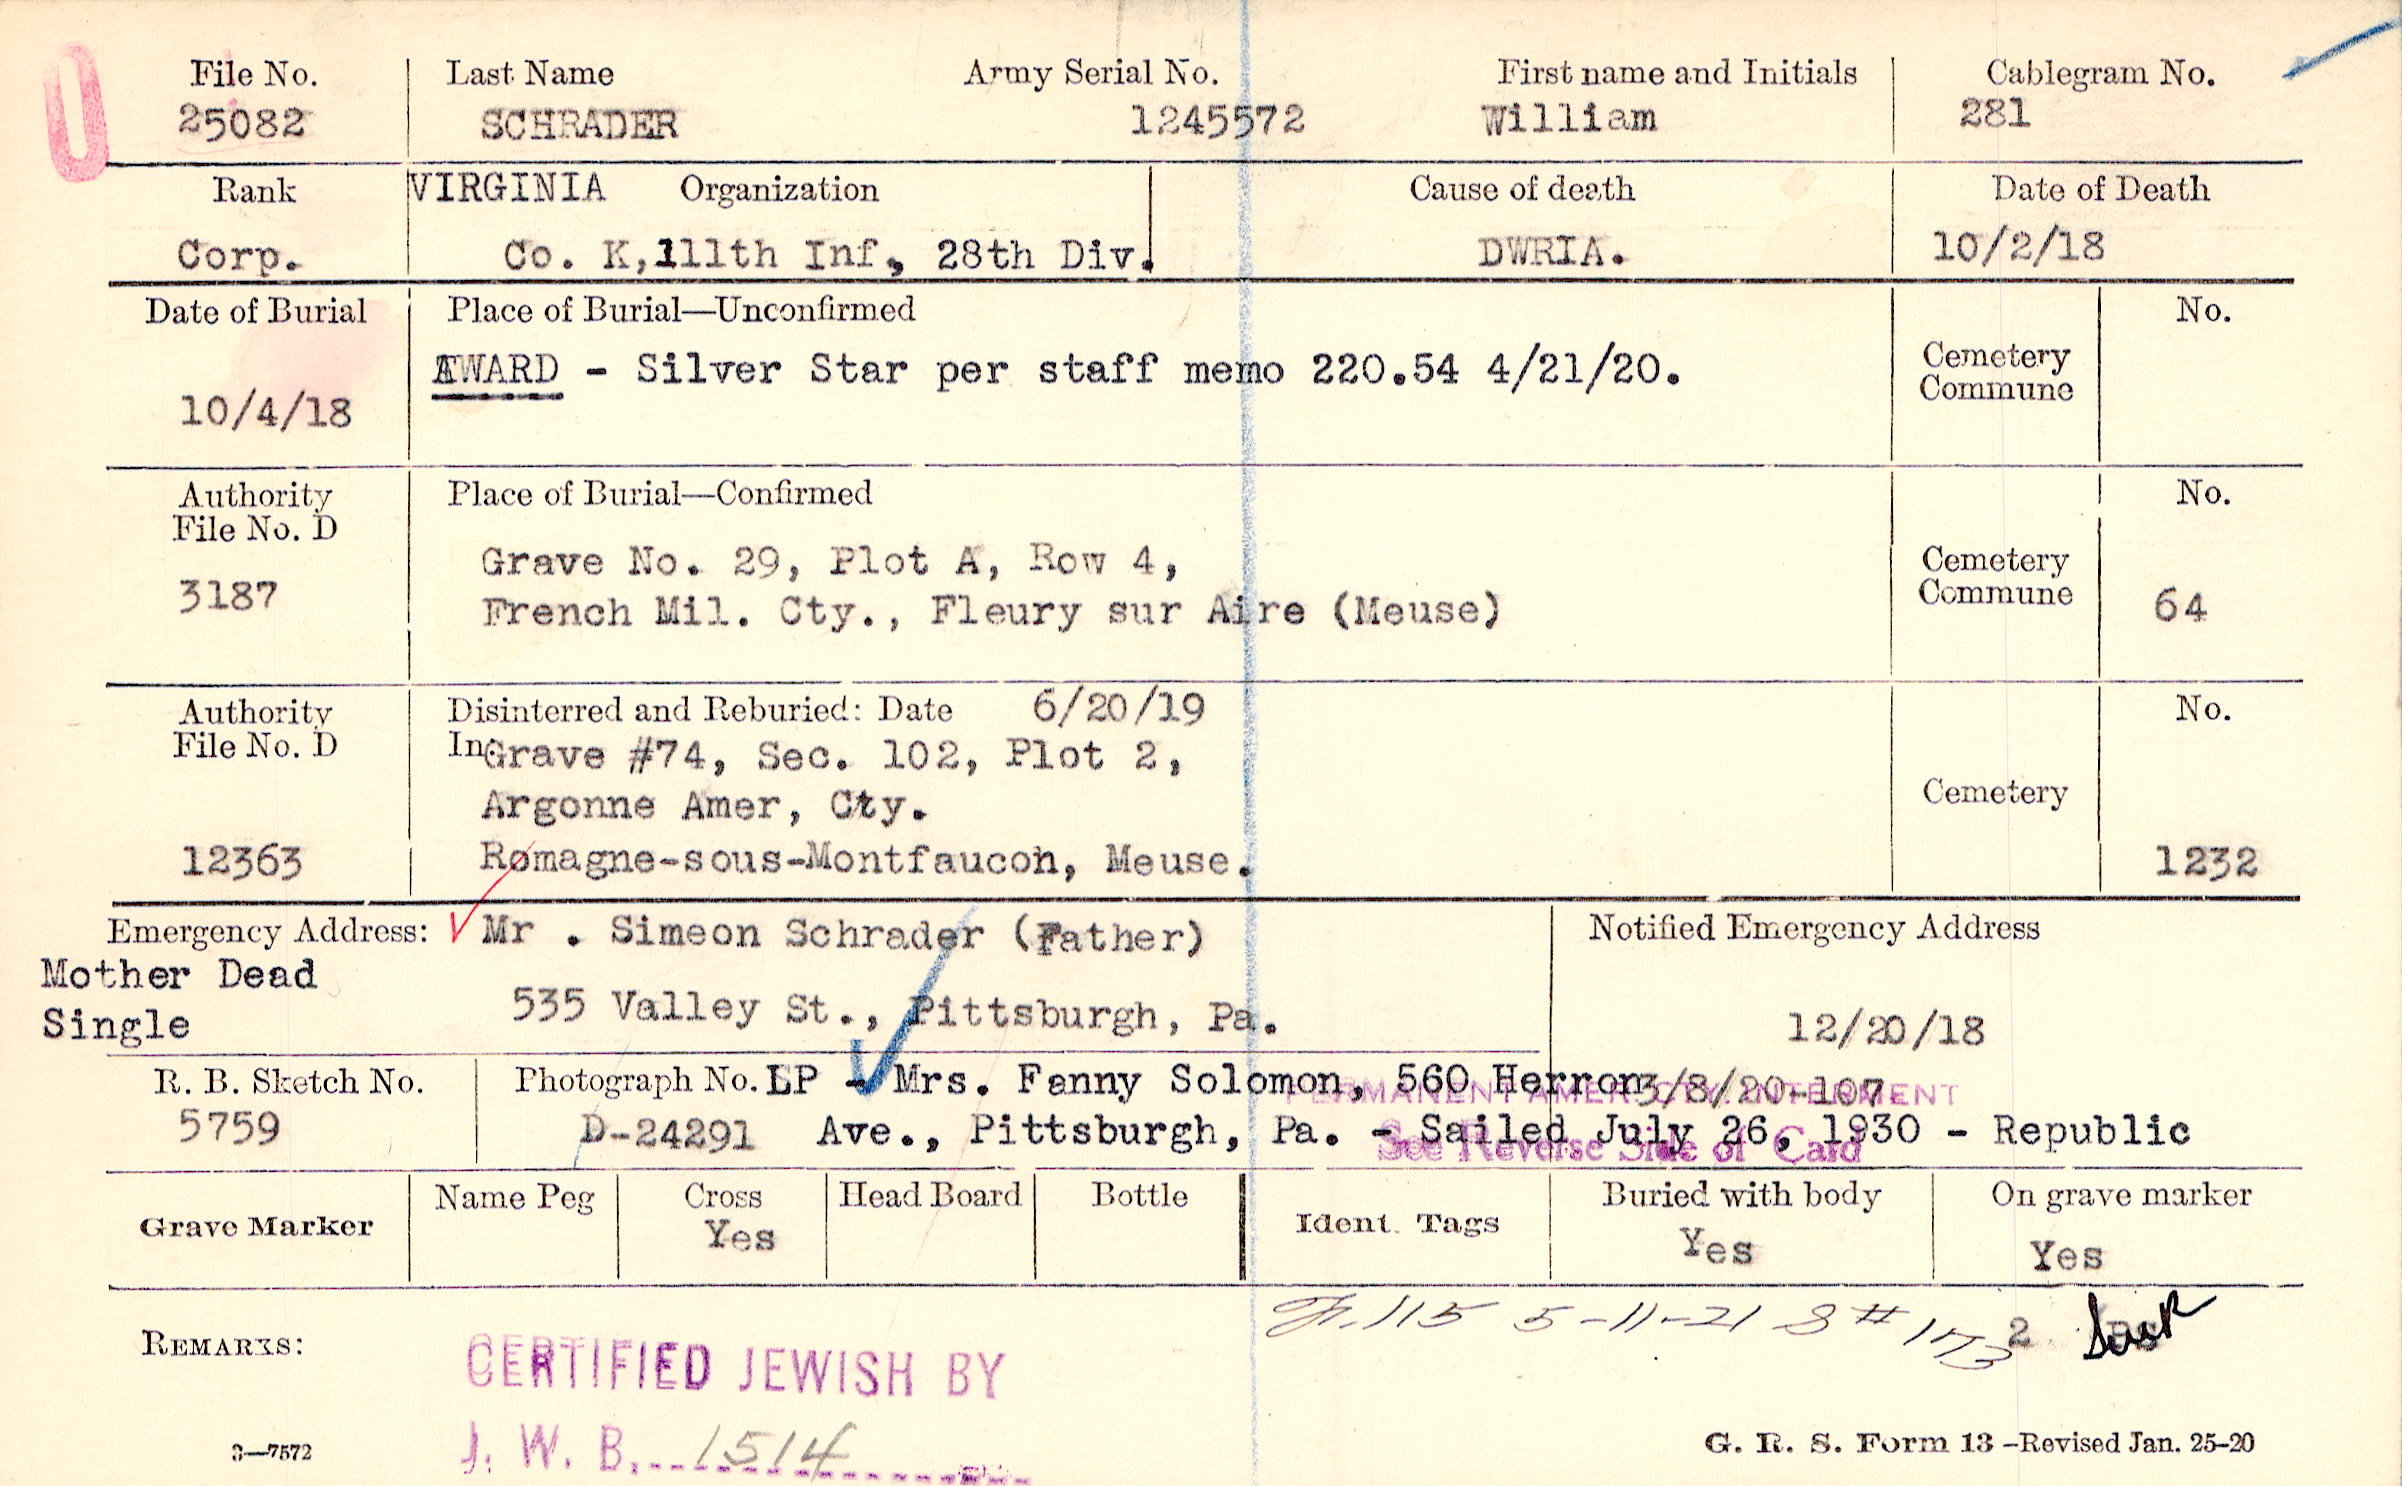 File No. Last Name Army Serial No. First name and Initials Cablegram No.
25082 SCHRADER 1245572 William 281
Rank VIRGINIA Organization Cause of death Date of Death
Corp. Co. K, 111th Inf, 28th Div. DWRIA. 10/2/18
Date of Burial Place of Burial—Unconfirmed No.
AWARD - Silver Star per staff memo 220.54 4/21/20. Cemetery
Commune
10/4/18
Authority Place of Burial—Confirmed No.
File No. D
Grave No. 29, Plot A, Row 4, Cemetery
3187 French Mil. Cty., Fleury sur Aire (Meuse) Commune 64
Authority Disinterred and Reburied: Date 6/20/19 No.
File No. D In: Grave #74, Sec. 102, Plot 2,
Argonne Amer, Cty. Cemetery
12363 Romagne-sous-Montfaucon, Meuse. 1232
Emergency Address: Mr . Simeon Schrader (Father) Notified Emergency Address
Mother Dead
535 Valley St., Pittsburgh, Pa. 12/20/18
Single
R. B. Sketch No. Photograph No. LP - Mrs. Fanny Solomon, 560 Herron 3/8/20-107
PERMANENT AMER. CTY. INTERMENT
5759 D-24291 Ave., Pittsburgh, Pa. - Sailed July 26, 1930 - Republic
See Reverse Side of Card
Grave Marker Name Peg Cross Head Board Bottle Ident. Tags Buried with body On grave marker
Yes Yes Yes
115 5-11-21 S # 173 2
REMARKS:
CERTIFIED JEWISH BY
J. W. B. 1514
3—7572 G. R. S. Form 13 —Revised Jan. 25-20